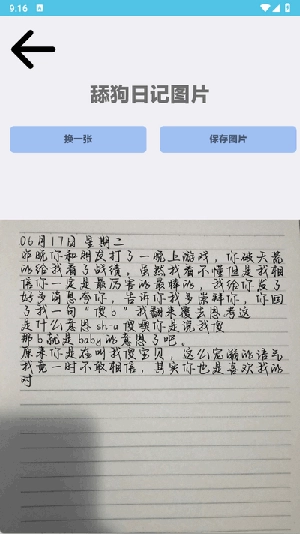 9:16
舔狗日记图片
换一张 保存图片
06月17日 星期二
昨晚你和朋友打了一晚上游戏，你破天荒
的给我看了战绩，虽然我看不懂但是我相
信你一定是最厉害的最棒的，我给你发了
好多消息夸你，告诉你我多崇拜你，你回
了我一句“傻b”我翻来覆去思考这
是什么意思sh.a傻噢你是说我傻
那b就是baby的意思了吧。
原来你是在叫我傻宝贝，这么宠溺的语气
我竟一时不敢相信，其实你也是喜欢我的
对